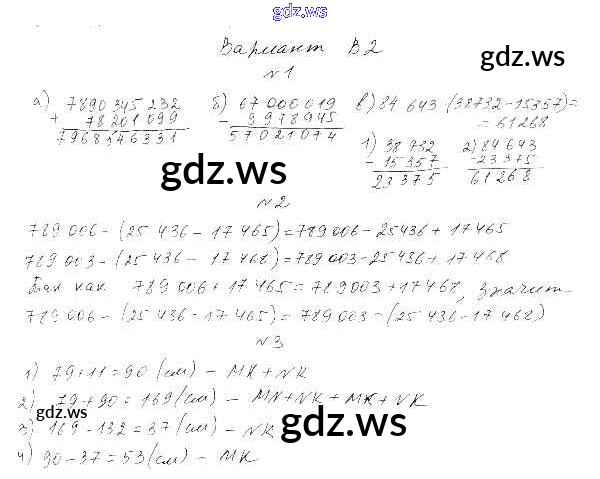 gdz.ws
Вариант В2
gdz.ws
№1
а) 7890 345 232
+ 78 201 099
7968546331
б) 67 000 019
- 9 978 945
57021074
в) 84 643 - (38732 - 15357) =
= 61268
1) 38 732
- 15 357
23 375
2) 84 643
- 23 375
61 268
gdz.ws
№2
789 006 - (25 436 - 17 465) = 789 006 - 25436 + 17465
789 003 - (25 436 - 17 468) = 789 003 - 25 436 + 17 468
Так как 789 006 + 17 465 = 789003 + 17468, значит
789 006 - (25 436 - 17 465) = 789 003 - (25 436 - 17 468)
№3
1) 79 + 11 = 90 (см) - MK + NK
2) 79 + 90 = 169 (см) - MN + NK + MK + NK
gdz.ws
3) 169 - 132 = 37 (см) - NK
gdz.ws
4) 90 - 37 = 53 (см) - MK